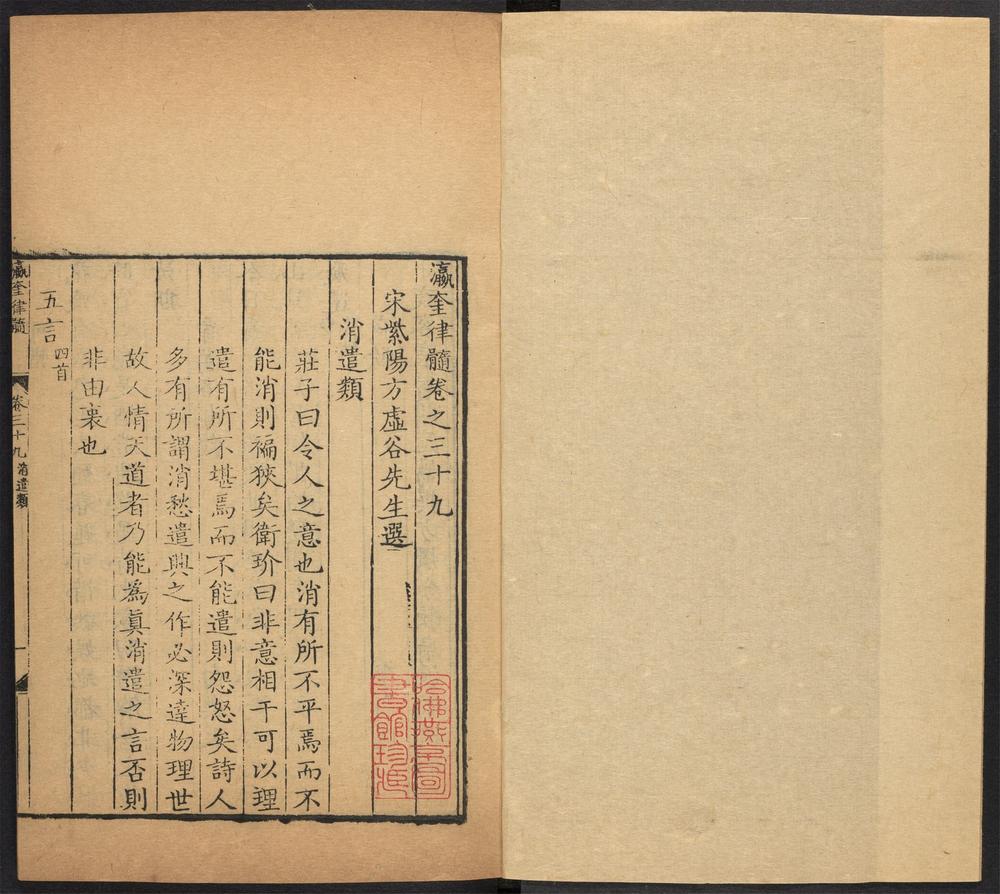 瀛奎律髓卷之三十九
宋紫陽方虛谷先生選
消遣類
莊子曰令人之意也消有所不平焉而不
能消則褊狹矣衛玠曰非意相干可以理
遣有所不堪焉而不能遣則怨怒矣詩人
多有所謂消愁遣興之作必深達物理世
故人情天道者乃能爲眞消遣之言否則
非由裏也
五言四首
瀛奎律髓
卷三十九
消遣類
一
哈佛燕京圖
書館珍藏